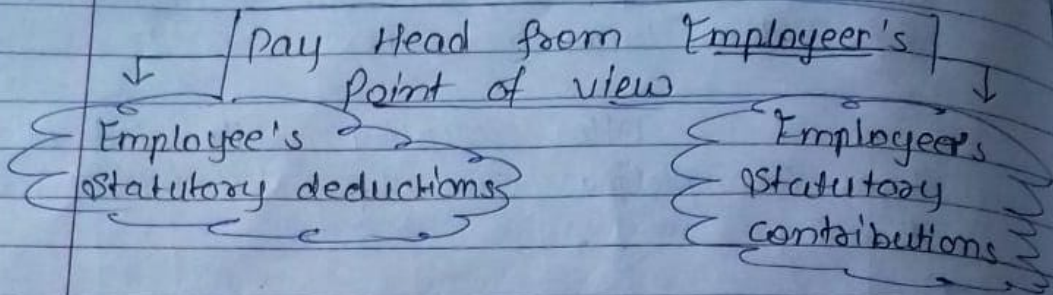 Pay Head from Employeer's
Point of view
Employee's
Statutory deductions
Employeers
Statutory
contributions